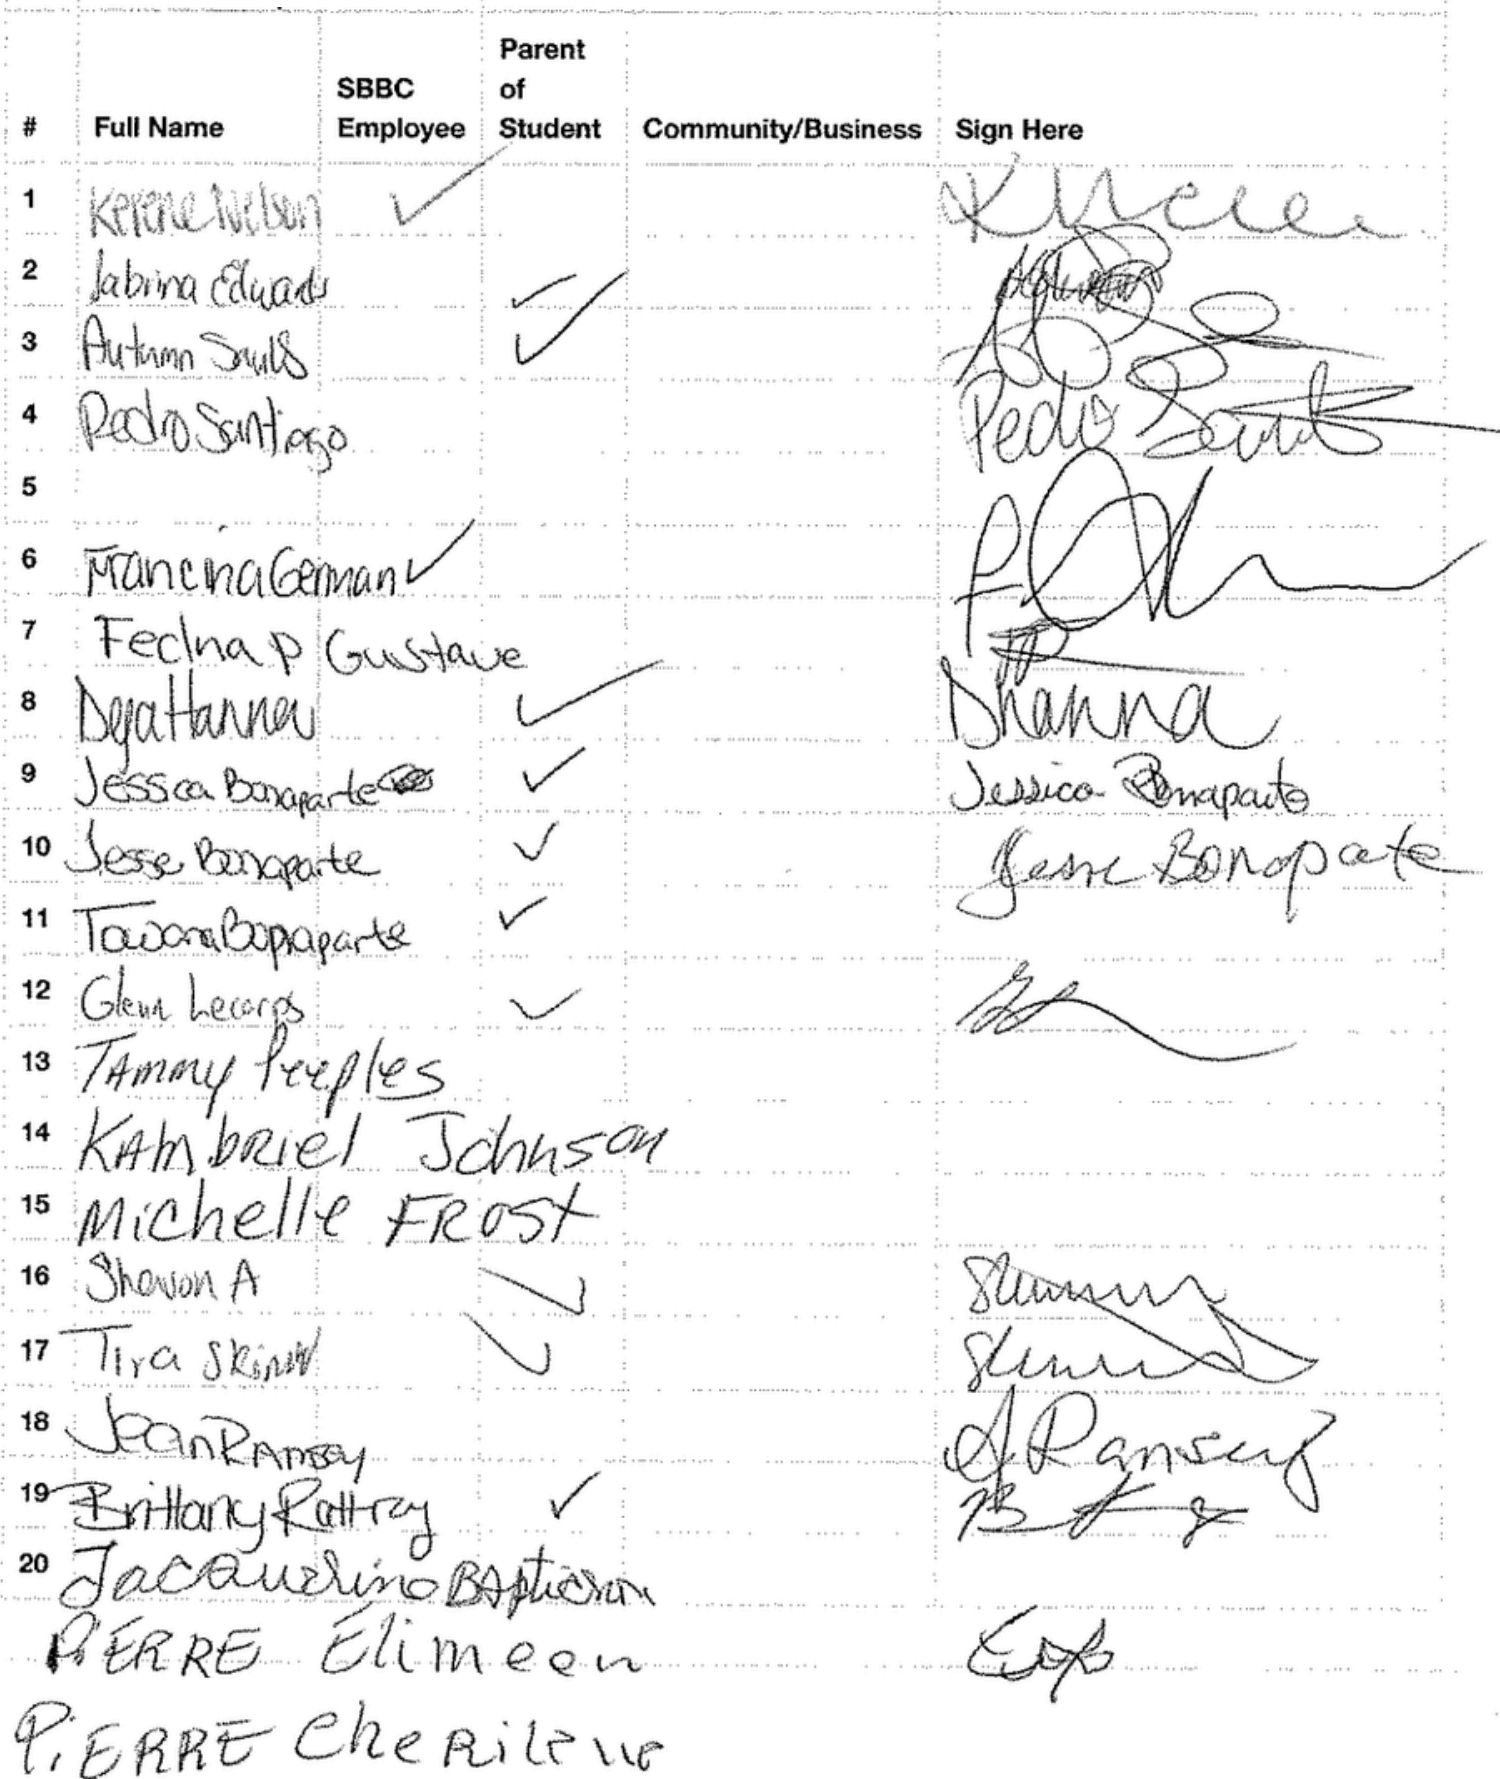 # Full Name SBBC Employee Parent of Student Community/Business Sign Here
1 Kerene Nelson ✓
2 Sabrina Edwards ✓
3 Autumn Sauls ✓
4 Pedro Santiago Pedro
5
6 Francina German ✓
7 Feclna P Gustave
8 Deja Hanna ✓ DHanna
9 Jessica Bonaparte ✓ Jessica Bonaparte
10 Jesse Bonaparte ✓ Jesse Bonaparte
11 Tawana Bonaparte ✓
12 Glenn Lecorps ✓
13 Tammy Peeples
14 KAmbRiel Johnson
15 Michelle FRost
16 Shavon A ✓
17 Tira Skinner ✓
18 Jean Ramsey J Ramsey
19 Brittany Rattray ✓
20 Jacqueline
PiERRE Elimeen
PiERRE CheRilene